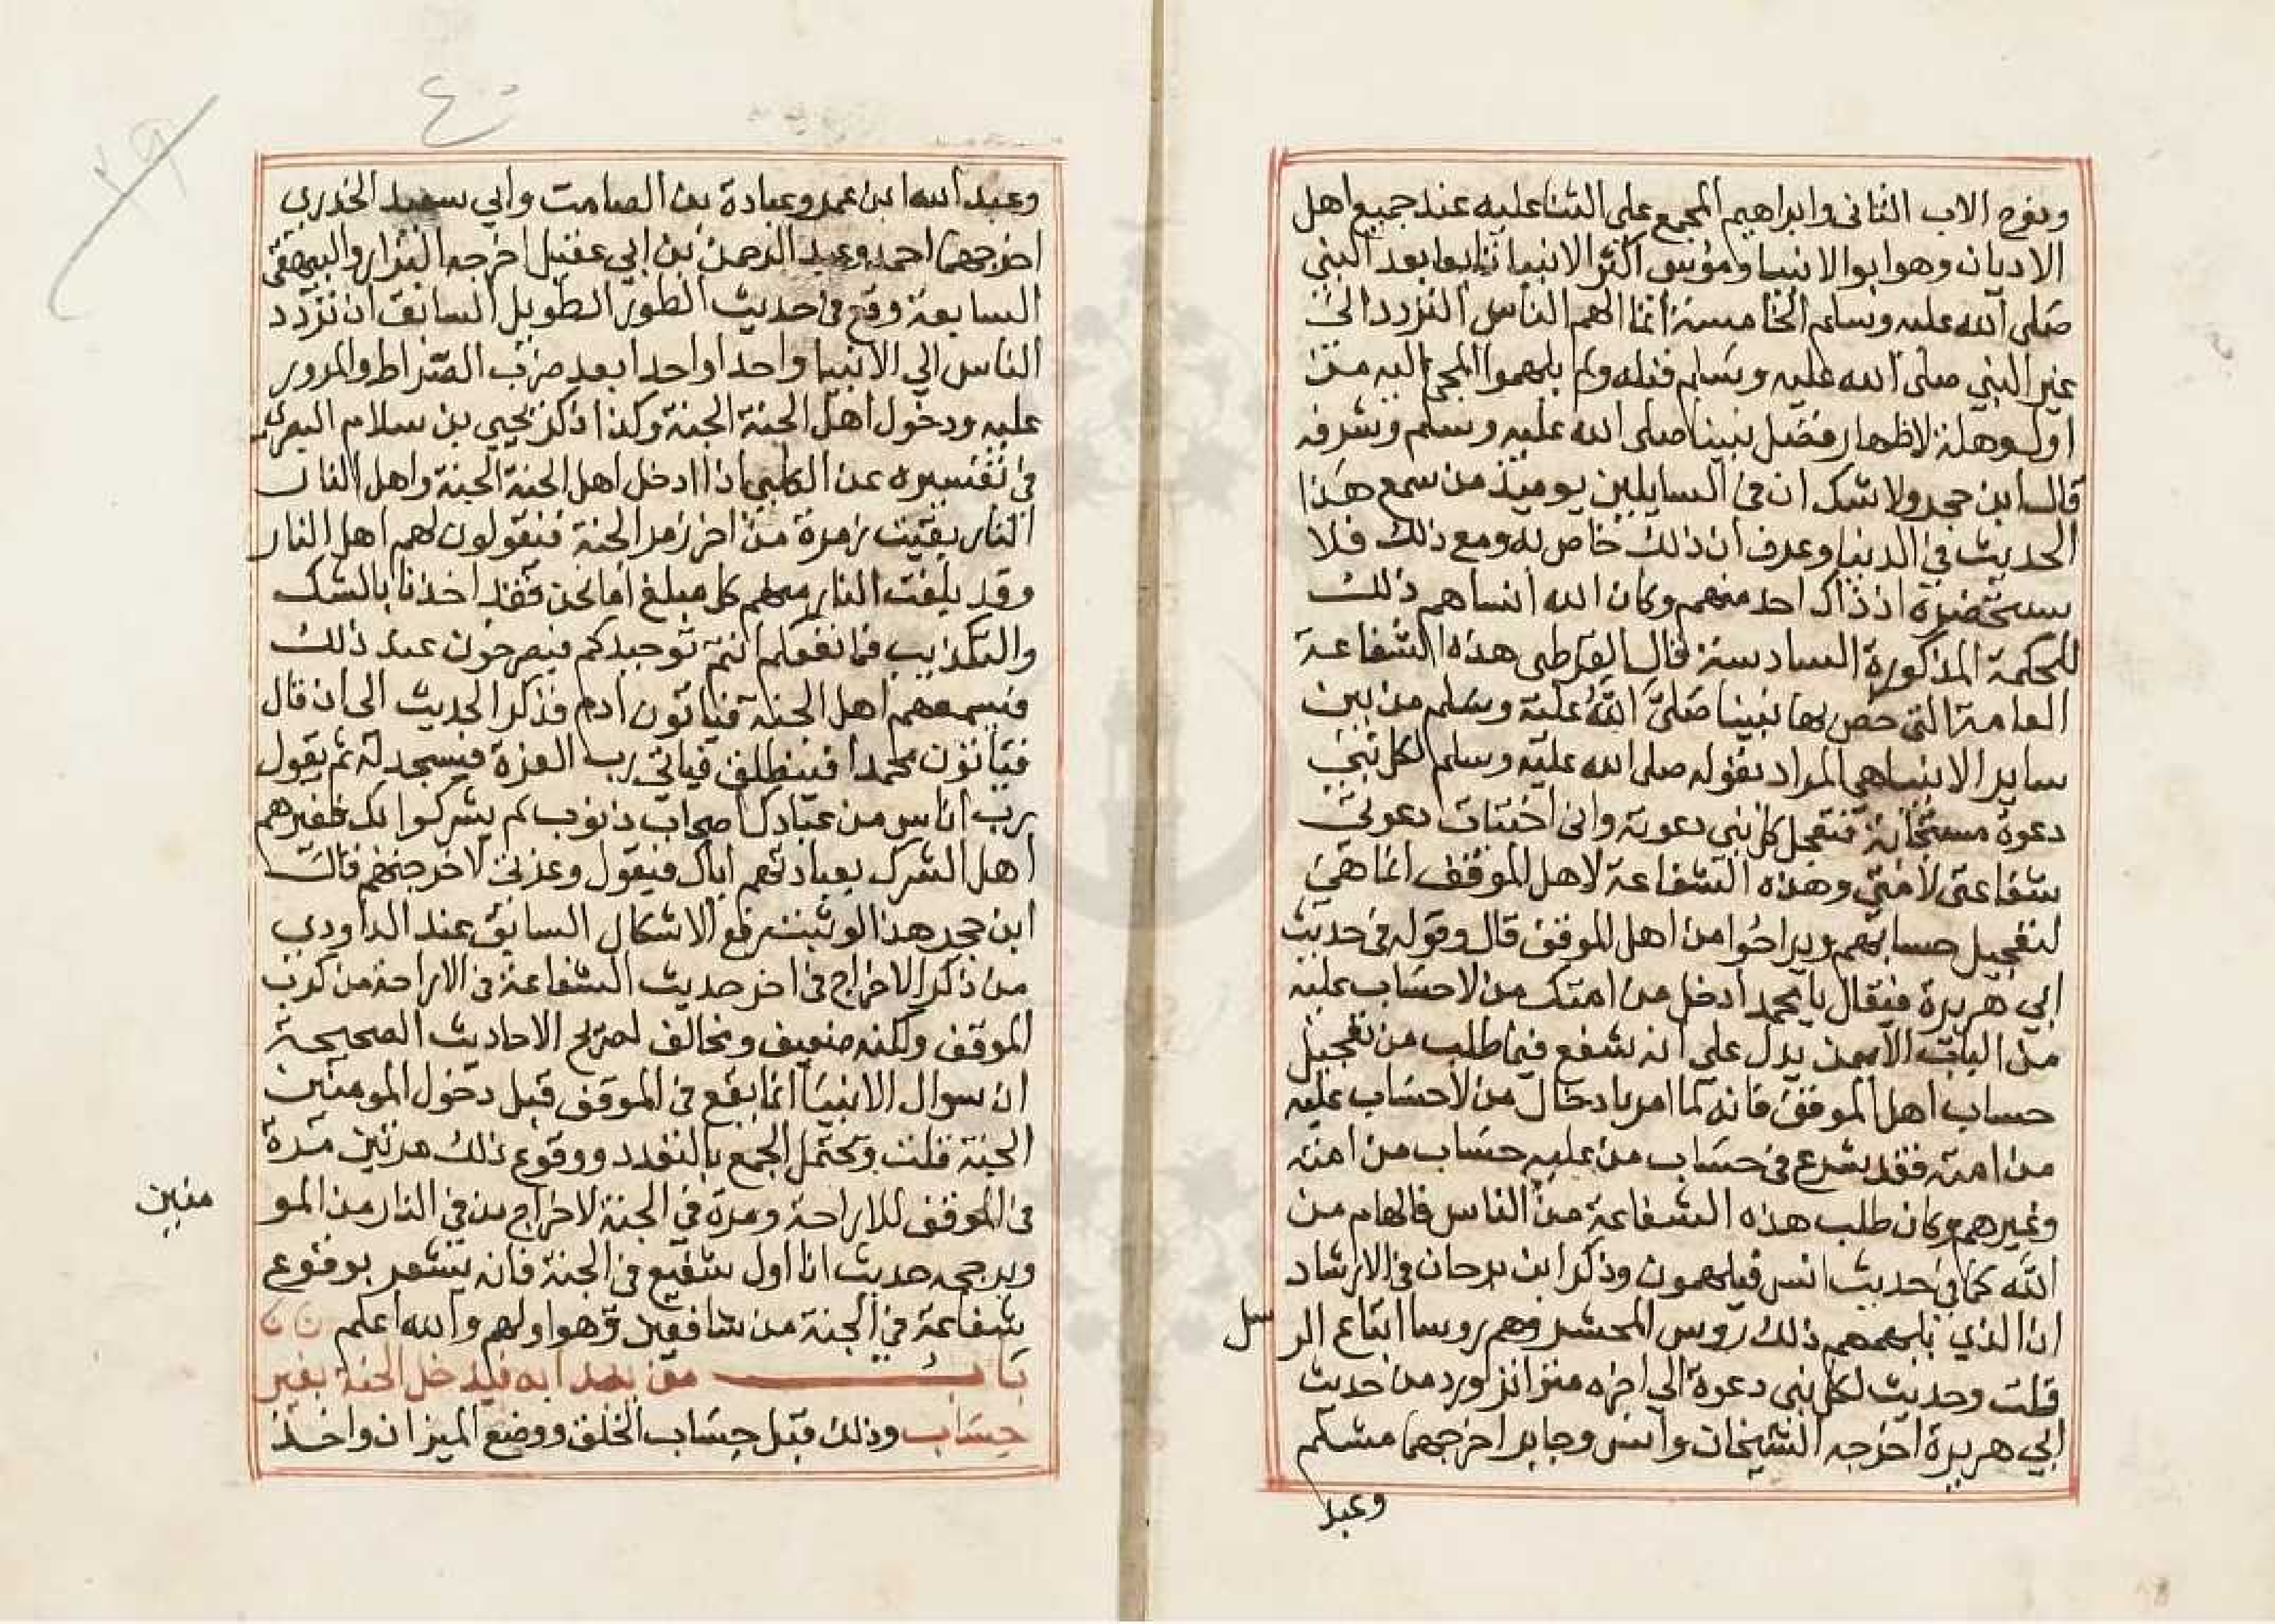 ونوح الاب الثانى وابراهيم المجمع على الثنا عليه عند جميع اهل
الاديان وهو ابو الانبيا وموسى اكثر الانبيا تابعا بعد النبي
صلى الله عليه وسلم الخامسة انما الهم الناس التردد الى
غير النبي صلى الله عليه وسلم قبله ولم يلهموا المجئ اليه من
اول وهلة لاظهار فضل نبينا صلى الله عليه وسلم وشرفه
قال ابن حجر ولا شك ان في السايلين يوميذ من سمع هذا
الحديث في الدنيا وعرف ان ذلك خاص له ومع ذلك فلا
يستحضره اذ ذاك احد منهم وكان الله انساهم ذلك
للحكمة المذكورة السادسة قال القرطبى هذه الشفاعة
العامة التي خص بها نبينا صلى الله عليه وسلم من بين
ساير الانبيا هي المراد بقوله صلى الله عليه وسلم لكل نبي
دعوة مستجابة فتعجل كل نبى دعوته وانى اختبات دعوتى
شفاعتى لامتي وهذه الشفاعة لاهل الموقف انما هي
لتعجيل حسابهم ويراحوا من اهل الموقف قال وقوله في حديث
ابي هريرة فيقال يا محمد ادخل من امتك من لا حساب عليه
من الباب الايمن يدل على انه شفع فيما طلب من تعجيل
حساب اهل الموقف فانه لما امر بادخال من لا حساب عليه
من امته فقد شرع في حساب من عليه حساب من امته
وغيرهم وكان طلب هذه الشفاعة من الناس فالهام من
الله كما في حديث انس فيلهمون وذكر ابن برجان في الارشاد
ان الذي يلهمهم ذلك روس المحشر وهم روسا اتباع الر
سل
قلت وحديث لكل نبى دعوة الى اخره متواتر ورد من حديث
ابي هريرة اخرجه الشيخان وانس وجابر اخرجهما مسلم
وعبد
٤٠
وعبد الله ابن عمرو وعبادة بن الصامت وابي سعيد الخدرى
اخرجهما احمد وعبد الرحمن بن ابي عقيل اخرجه البزار والبيهقي
السابعة وقع في حديث الطور الطويل السابق ان تردد
الناس الي الانبيا واحدا واحدا بعد ضرب الصراط والمرور
عليه ودخول اهل الجنة الجنة وكذا ذكر يحيي بن سلام البصرى
في تفسيره عن الكلبي اذا ادخل اهل الجنة الجنة واهل النار
النار بقيت زمرة من اخر زمر الجنة فيقولون لهم اهل النار
وقد بلغت النار منهم كل مبلغ اما نحن فقد اخذنا بالشك
والتكذيب فما نفعكم انتم توحيدكم فيصرخون عند ذلك
فيسمعهم اهل الجنة فياتون ادم فذكر الحديث الى ان قال
فياتون محمدا فينطلق فياتي رب العزة فيسجد له ثم يقول
رب اناس من عبادك اصحاب ذنوب لم يشركوا بك فغيرهم
اهل الشرك بعبادتهم اياك فيقول وعزتي لاخرجنهم قال
ابن حجر هذا لو ثبت رفع الاشكال السابق عند الداودي
من ذكر الاخراج في اخر حديث الشفاعة في الاراحة من كرب
الموقف ولكنه ضعيف ومخالف لصريح الاحاديث الصحيحة
ان سوال الانبيا انما يقع في الموقف قبل دخول المومنين
الجنة قلت ويحتمل الجمع بالتعدد ووقوع ذلك مرتين مرة
في الموقف للاراحة ومرة في الجنة لاخراج من في النار من المو
منين
ويرجحه حديث انا اول شفيع في الجنة فانه يشعر بوقوع
شفاعة في الجنة من شافعين وهو اولهم والله اعلم
باب من يدخل الجنة بغير
حساب وذلك قبل حساب الخلق ووضع الميزان واخذ